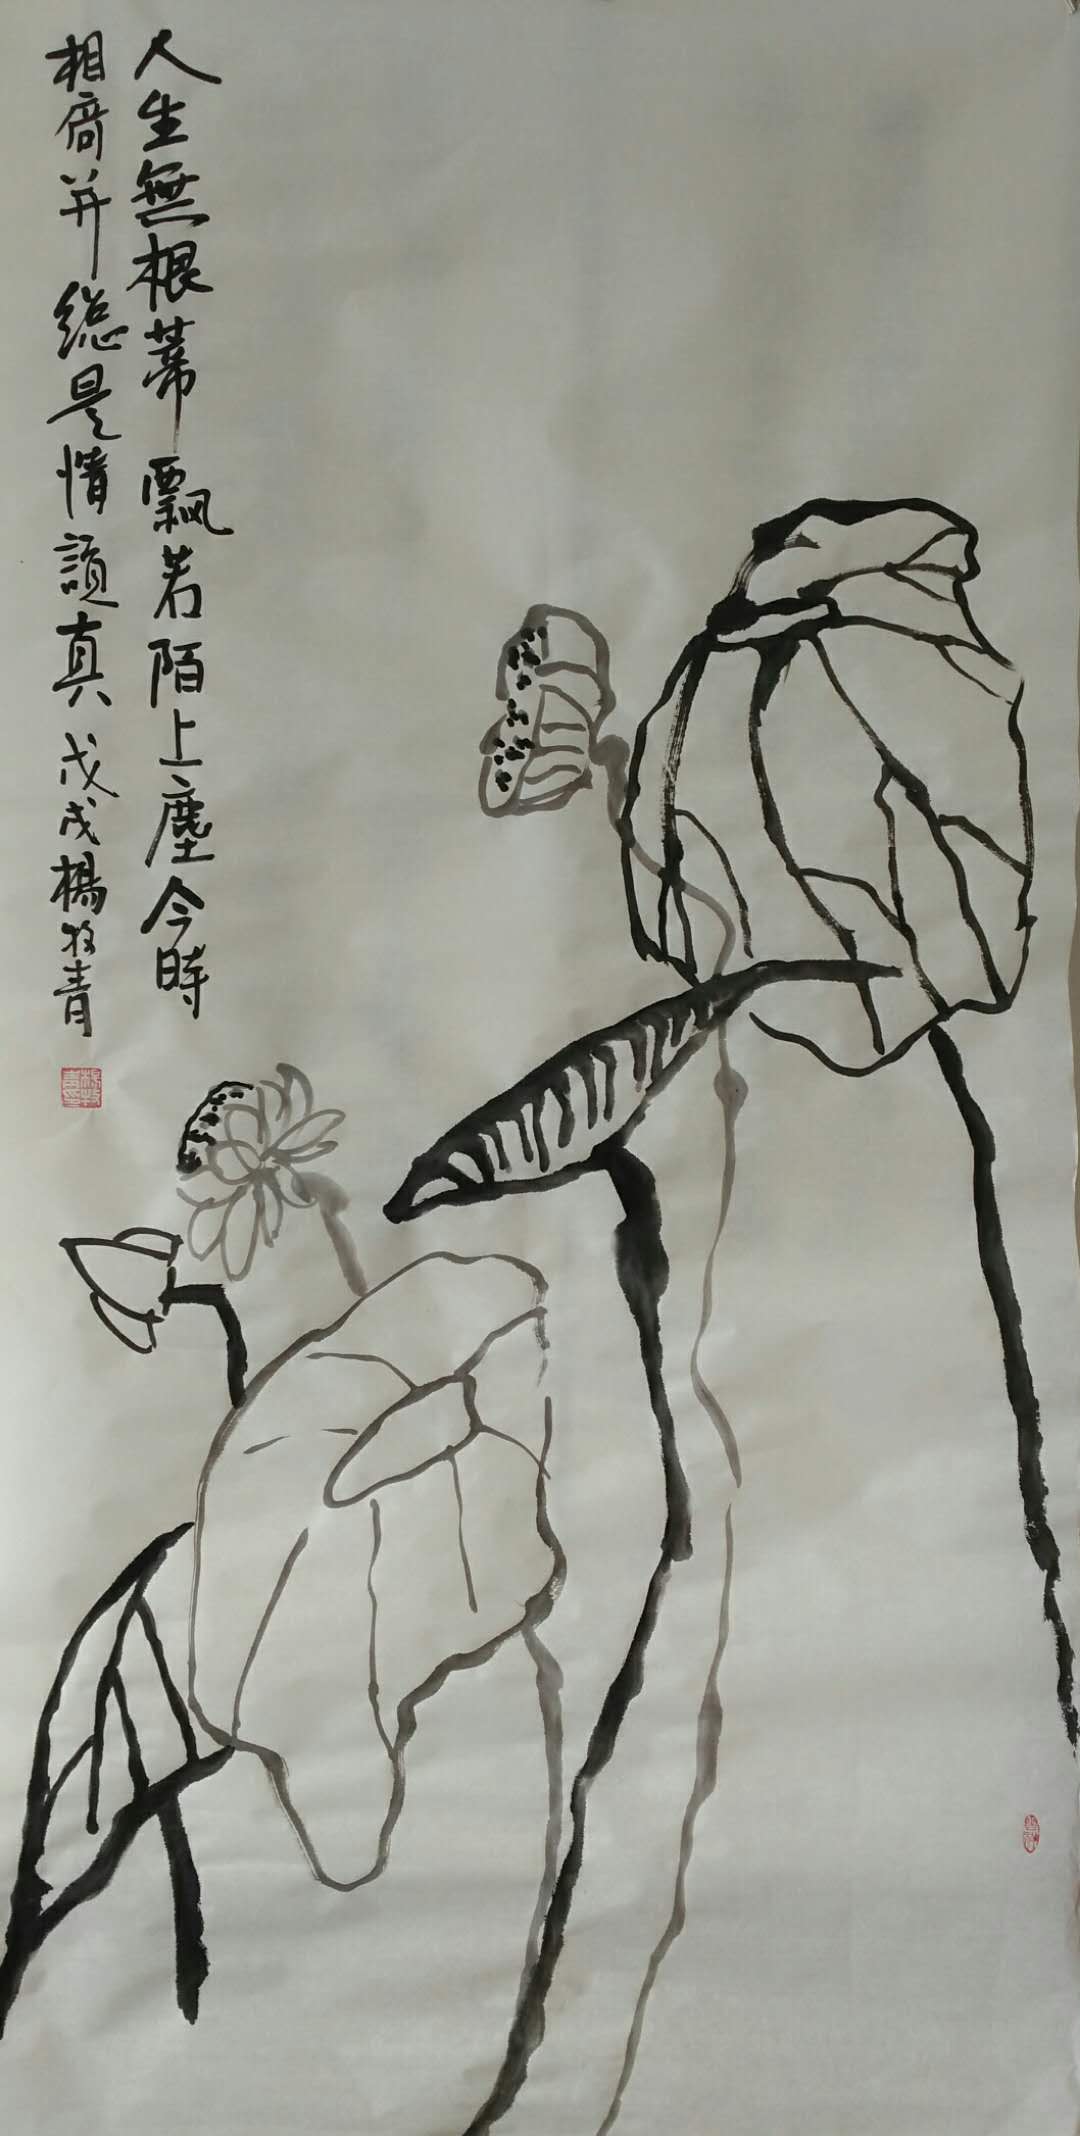 人生無根蒂飄若陌上塵今時
相倚并總是情誼真戊戌楊牧青